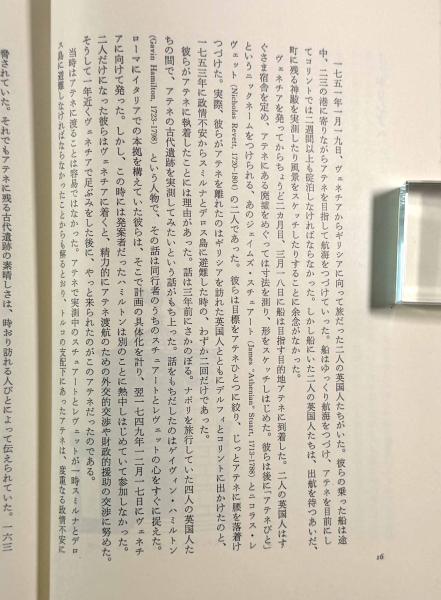 一七五一年一月一九日、ヴェネチアからギリシアに向って旅だった二人の英国人たちがいた。彼らの乗った船は途
中、二三の港に寄りながらアテネを目指して航海をつづけていた。船はゆっくり航海をつづけ、アテネを目前にし
てコリントでは二週間以上も碇泊しなければならなかった。しかし船にいた二人の英国人たちは、出航を待つあいだ、
町に残る神殿を実測したり風景をスケッチしたりすることに余念がなかった。
ヴェネチアを発ってからちょうど二カ月目、三月一八日に船は目指す目的地アテネに到着した。二人の英国人はす
ぐさま宿舎を定め、アテネにある廃墟をめぐっては寸法を測り、形をスケッチしはじめた。彼らは後に「アテネびと」
というニックネームをつけられる、あのジェイムズ・スチュアート (James "Athenian" Stuart, 1713-1788) とニコラス・レ
ヴェット (Nicholas Revett, 1720-1804) の二人であった。彼らは目標をアテネひとつに絞り、じっとアテネに腰を落着け
つづけた。実際、彼らがアテネを離れたのはギリシアを訪れた英国人とともにデルフィとコリントに出かけたのと、
一七五三年に政情不安からスミルナとデロス島に避難した時の、わずか二回だけであった。
彼らがアテネに執着したことには理由があった。話は三年前にさかのぼる。ナポリを旅行していた四人の英国人た
ちの間で、アテネの古代遺跡を実測してみたいという話がもち上った。話をもちだしたのはゲイヴィン・ハミルトン
(Gavin Hamilton, 1723-1798) という人物で、その話は同行者のうちのスチュアートとレヴェットの心をすぐに捉えた。
ローマにイタリアでの本拠を構えていた彼らは、そこで計画の具体化を計り、翌一七四九年一二月一七日にヴェネチ
アに向けて発った。しかし、この時には発案者だったハミルトンは別のことに熱中しはじめていて参加しなかった。
二人だけになった彼らはヴェネチアに着くと、精力的にアテネ渡航のための外交的交渉や財政的援助の交渉に努めた。
そうして一年近くヴェネチアで足ぶみをした後に、やっと来られたのがこのアテネだったのである。
当時はアテネに渡ることは容易ではなかった。アテネで実測中のスチュアートとレヴェットが一時スミルナとデロ
ス島に避難しなければならなかったことからも解るとおり、トルコの支配下にあったアテネは、度重なる政情不安に
脅されていた。それでもアテネに残る古代遺跡の素晴しさは、時おり訪れる人びとによって伝えられていた。一六三
16